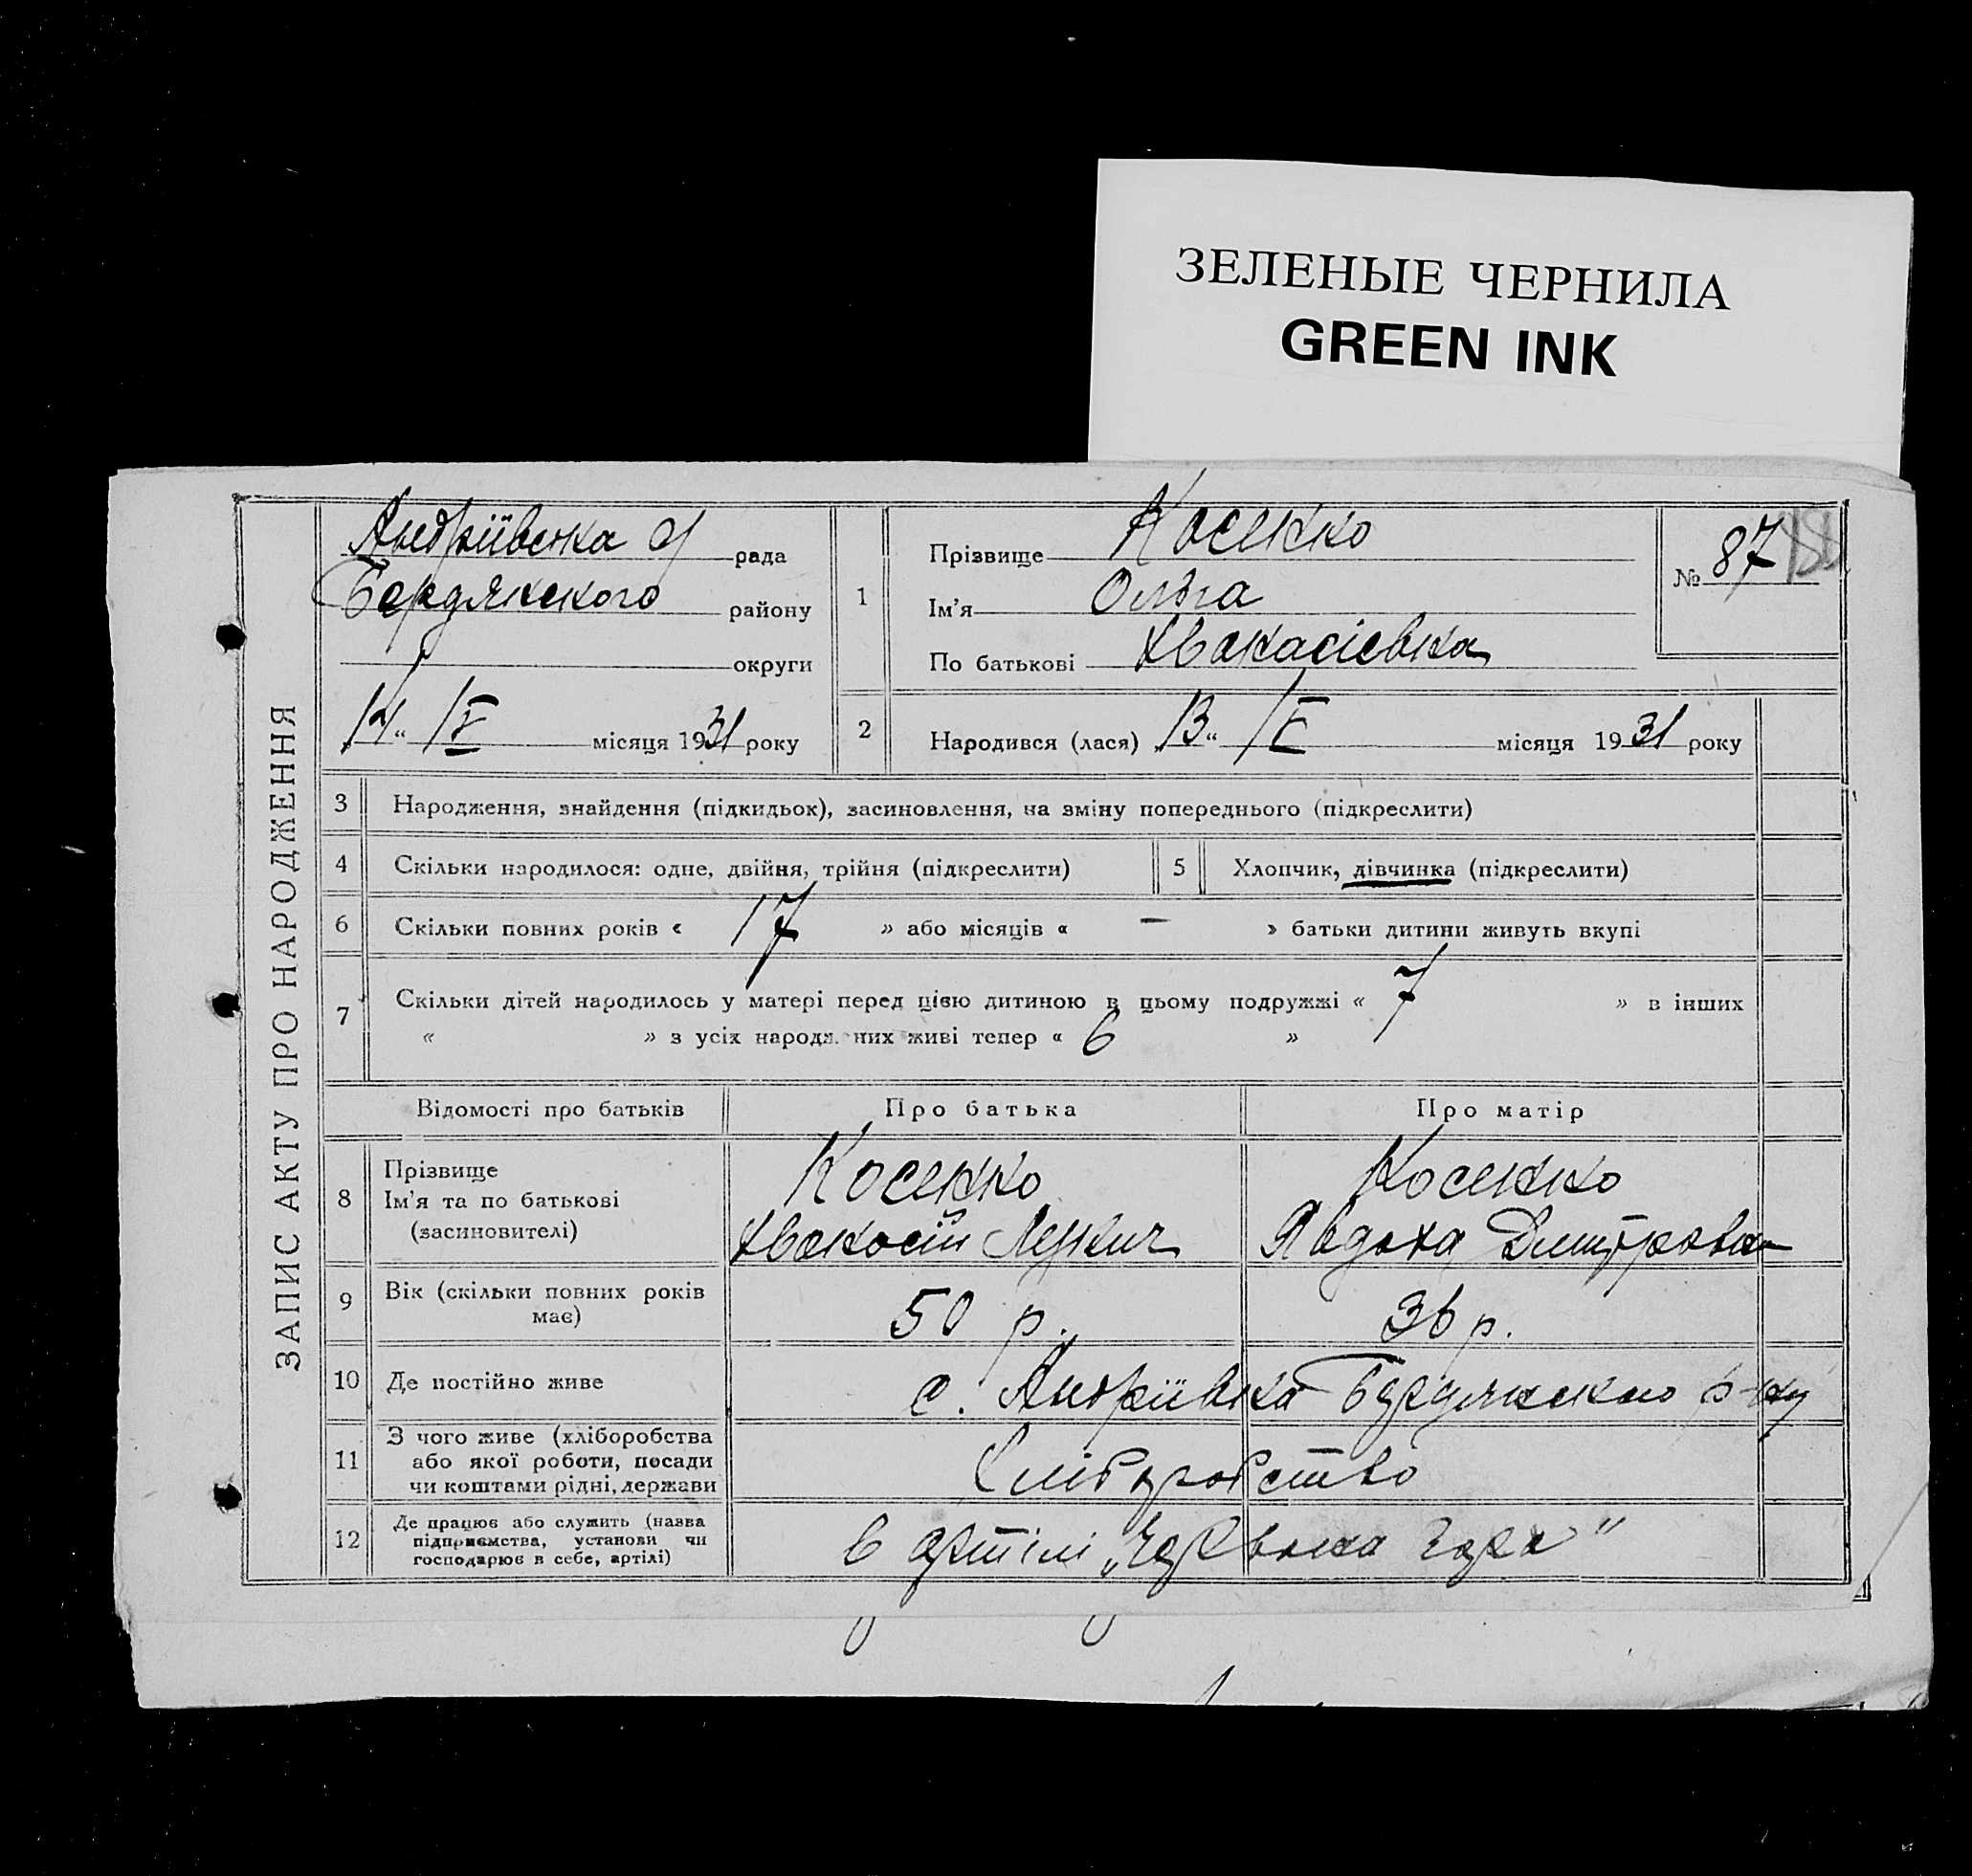 ЗЕЛЕНЫЕ ЧЕРНИЛА
GREEN INK
ЗАПИС АКТУ ПРО НАРОДЖЕННЯ
Андріївська рада
Бердянського району
округи
14 " /V місяця 1931 року
1
Прізвище Косенко
Ім'я Ольга
По батькові
№ 87
2
Народився (лася) 13 " /V місяця 1931 року
3 Народження, знайдення (підкидьок), засиновлення, на зміну попереднього (підкреслити)
4 Скільки народилося: одне, двійня, трійня (підкреслити)
5 Хлопчик, дівчинка (підкреслити)
6 Скільки повних років « 17 » або місяців « — » батьки дитини живуть вкупі
7 Скільки дітей народилось у матері перед цією дитиною в цьому подружжі « 7 » в інших
« » з усіх народж. них живі тепер « 6 »
Відомості про батьків Про батька Про матір
8
Прізвище
Ім'я та по батькові
(засиновителі)
Косенко
Косенко
Явдоха Дмитровна
9 Вік (скільки повних років
має)
50 р.
36 р.
10 Де постійно живе с. Андріївка Бердянського р-ну
11
З чого живе (хліборобства
або якої роботи, посади
чи коштами рідні, держави
Хліборобство
12
Де працює або служить (назва
підприємства, установи чи
господарює в себе, артілі)
в артілі „Червона